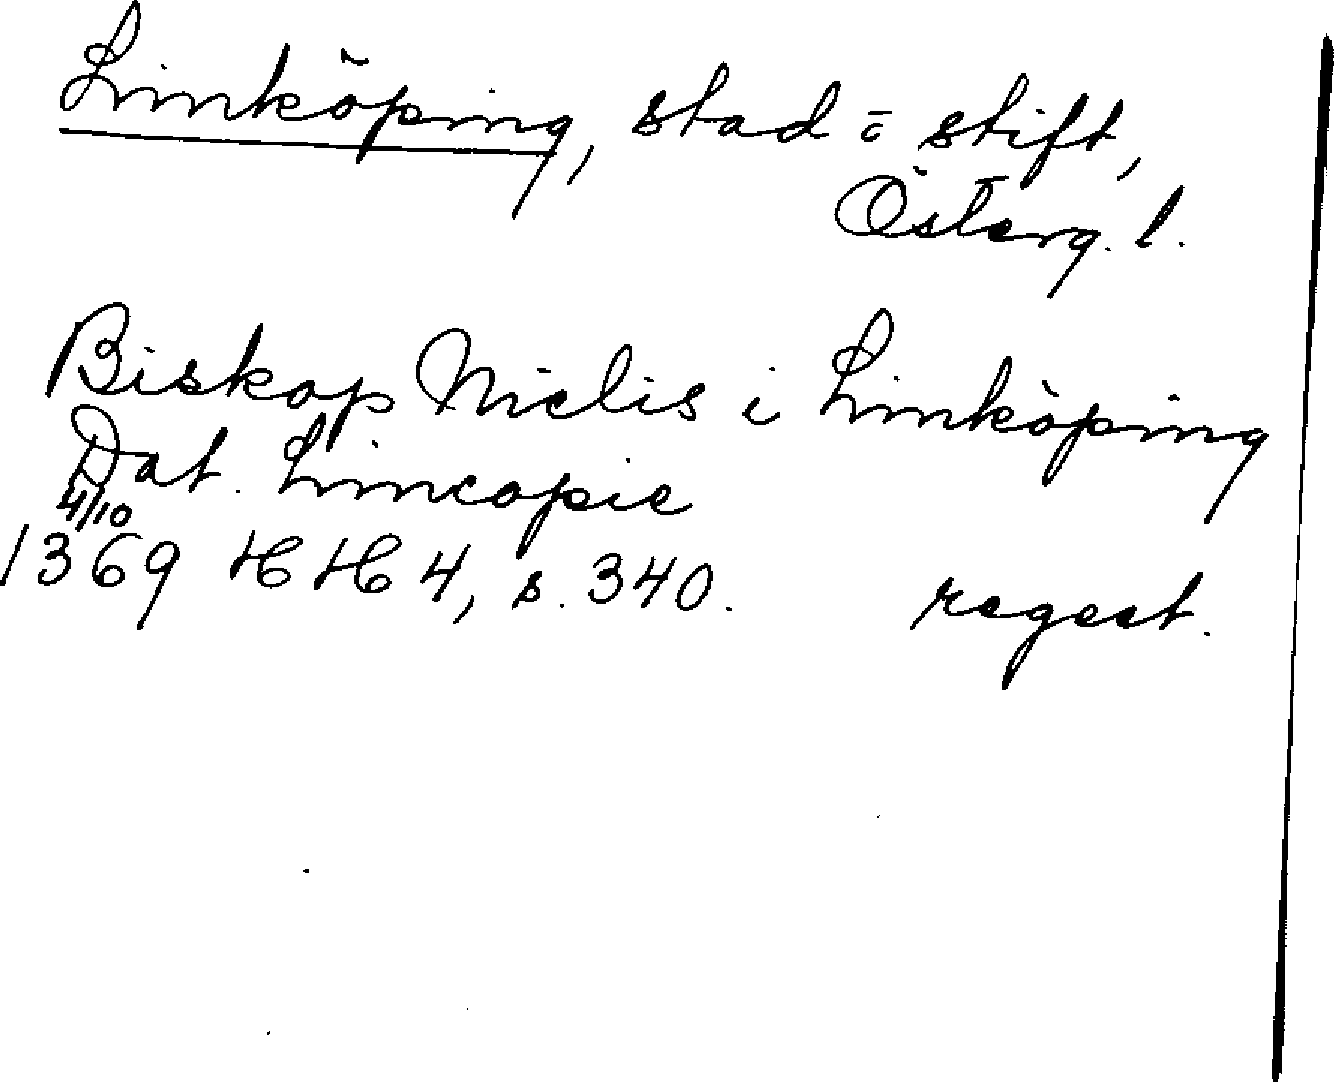 Linköping, stad o stift,
Österg. l.
Biskop Niclis i Linköping
Dat. Lincopie
4/10
1369 HH 4, s. 340. regest.